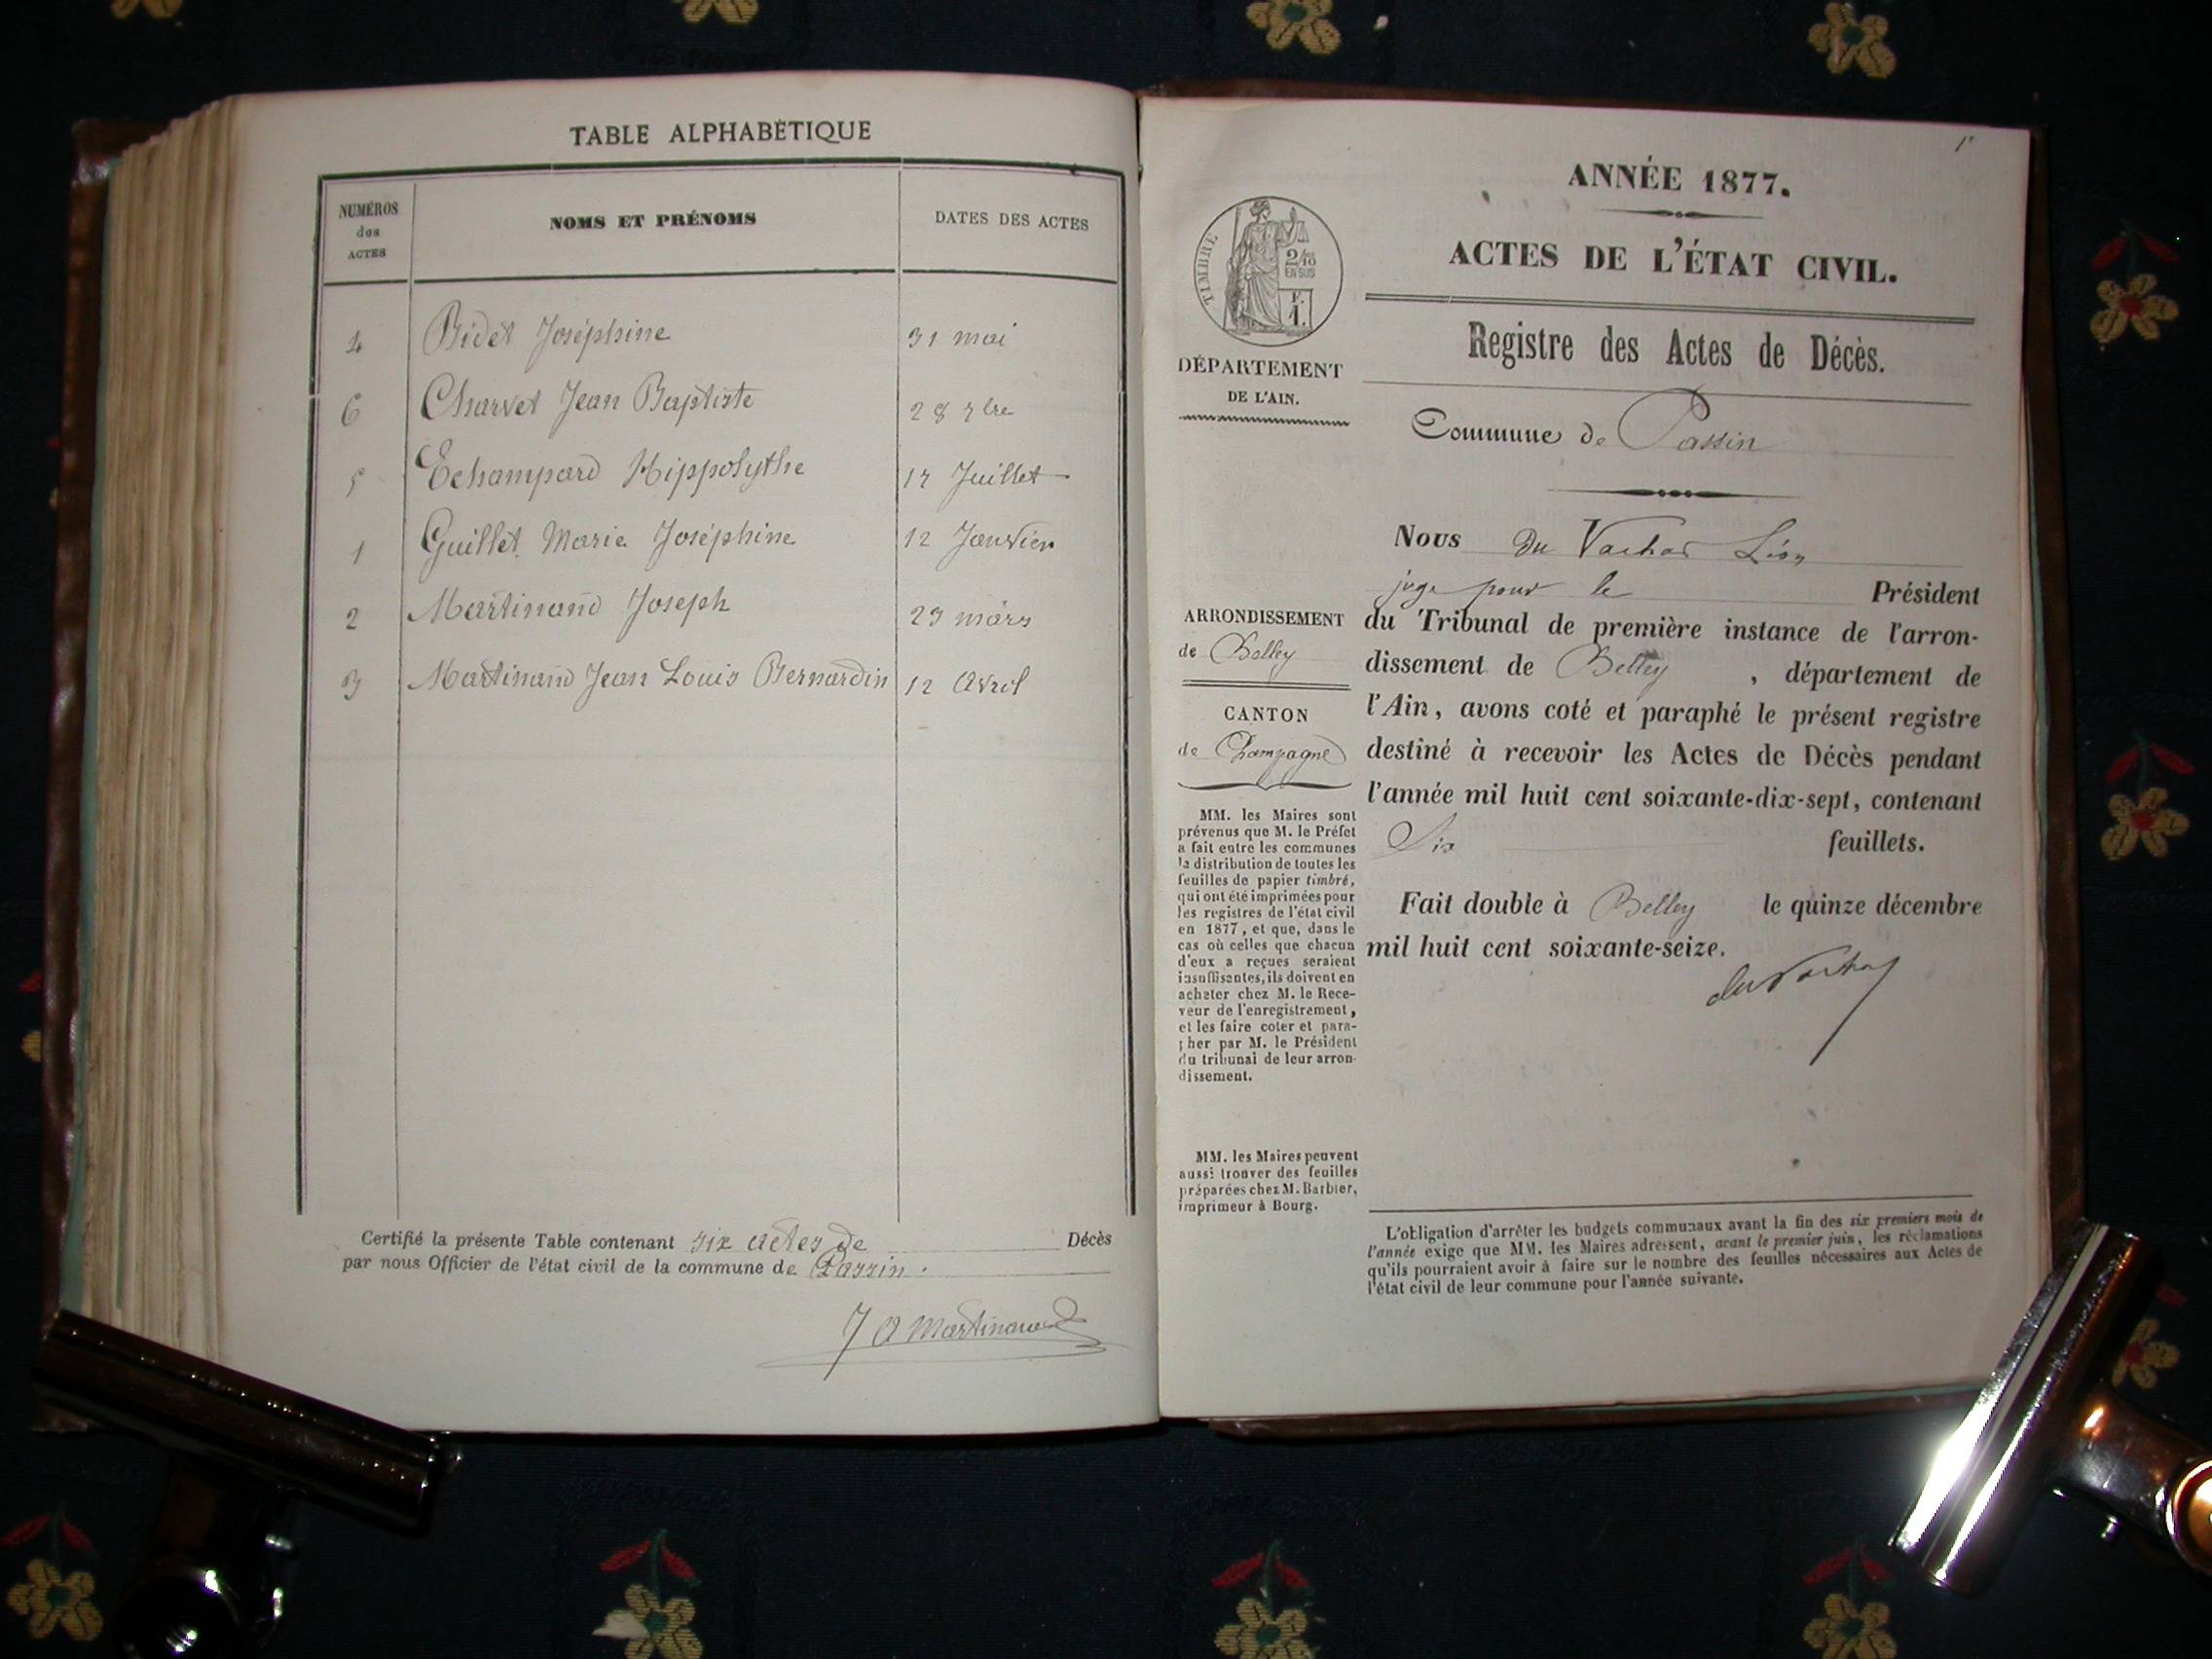 TABLE ALPHABÉTIQUE
NUMÉROS
des
ACTES
NOMS ET PRÉNOMS
DATES DES ACTES
4 Bidet Joséphine 31 mai
6 Charvet Jean Baptiste 28 7bre
5 Echampard Hippolythe 17 Juillet
1 Guillet Marie Joséphine 12 Janvier
2 Martinand Joseph 23 mars
3 Martinand Jean Louis Bernardin 12 Avril
Certifié la présente Table contenant six actes de Décès
par nous Officier de l'état civil de la commune de Passin.
J A Martinand
1r
ANNÉE 1877.
ACTES DE L'ÉTAT CIVIL.
TIMBRE
2/10
EN SUS
F.
1.
DÉPARTEMENT
DE L'AIN.
Registre des Actes de Décès.
Commune de Passin
Nous du Vachat Léon
juge pour le Président
du Tribunal de première instance de l'arron-
dissement de Belley, département de
l'Ain, avons coté et paraphé le présent registre
destiné à recevoir les Actes de Décès pendant
l'année mil huit cent soixante-dix-sept, contenant
Six feuillets.
Fait double à Belley le quinze décembre
mil huit cent soixante-seize.
du Vachat
ARRONDISSEMENT
de Belley
CANTON
de Champagne
MM. les Maires sont
prévenus que M. le Préfet
a fait entre les communes
la distribution de toutes les
feuilles de papier timbré,
qui ont été imprimées pour
les registres de l'état civil
en 1877, et que, dans le
cas où celles que chacun
d'eux a reçues seraient
insuffisantes, ils doivent en
acheter chez M. le Rece-
veur de l'enregistrement,
et les faire coter et para-
pher par M. le Président
du tribunal de leur arron-
dissement.
MM. les Maires peuvent
aussi trouver des feuilles
préparées chez M. Barbier,
imprimeur à Bourg.
L'obligation d'arrêter les budgets communaux avant la fin des six premiers mois de
l'année exige que MM. les Maires adressent, avant le premier juin, les réclamations
qu'ils pourraient avoir à faire sur le nombre des feuilles nécessaires aux Actes de
l'état civil de leur commune pour l'année suivante.